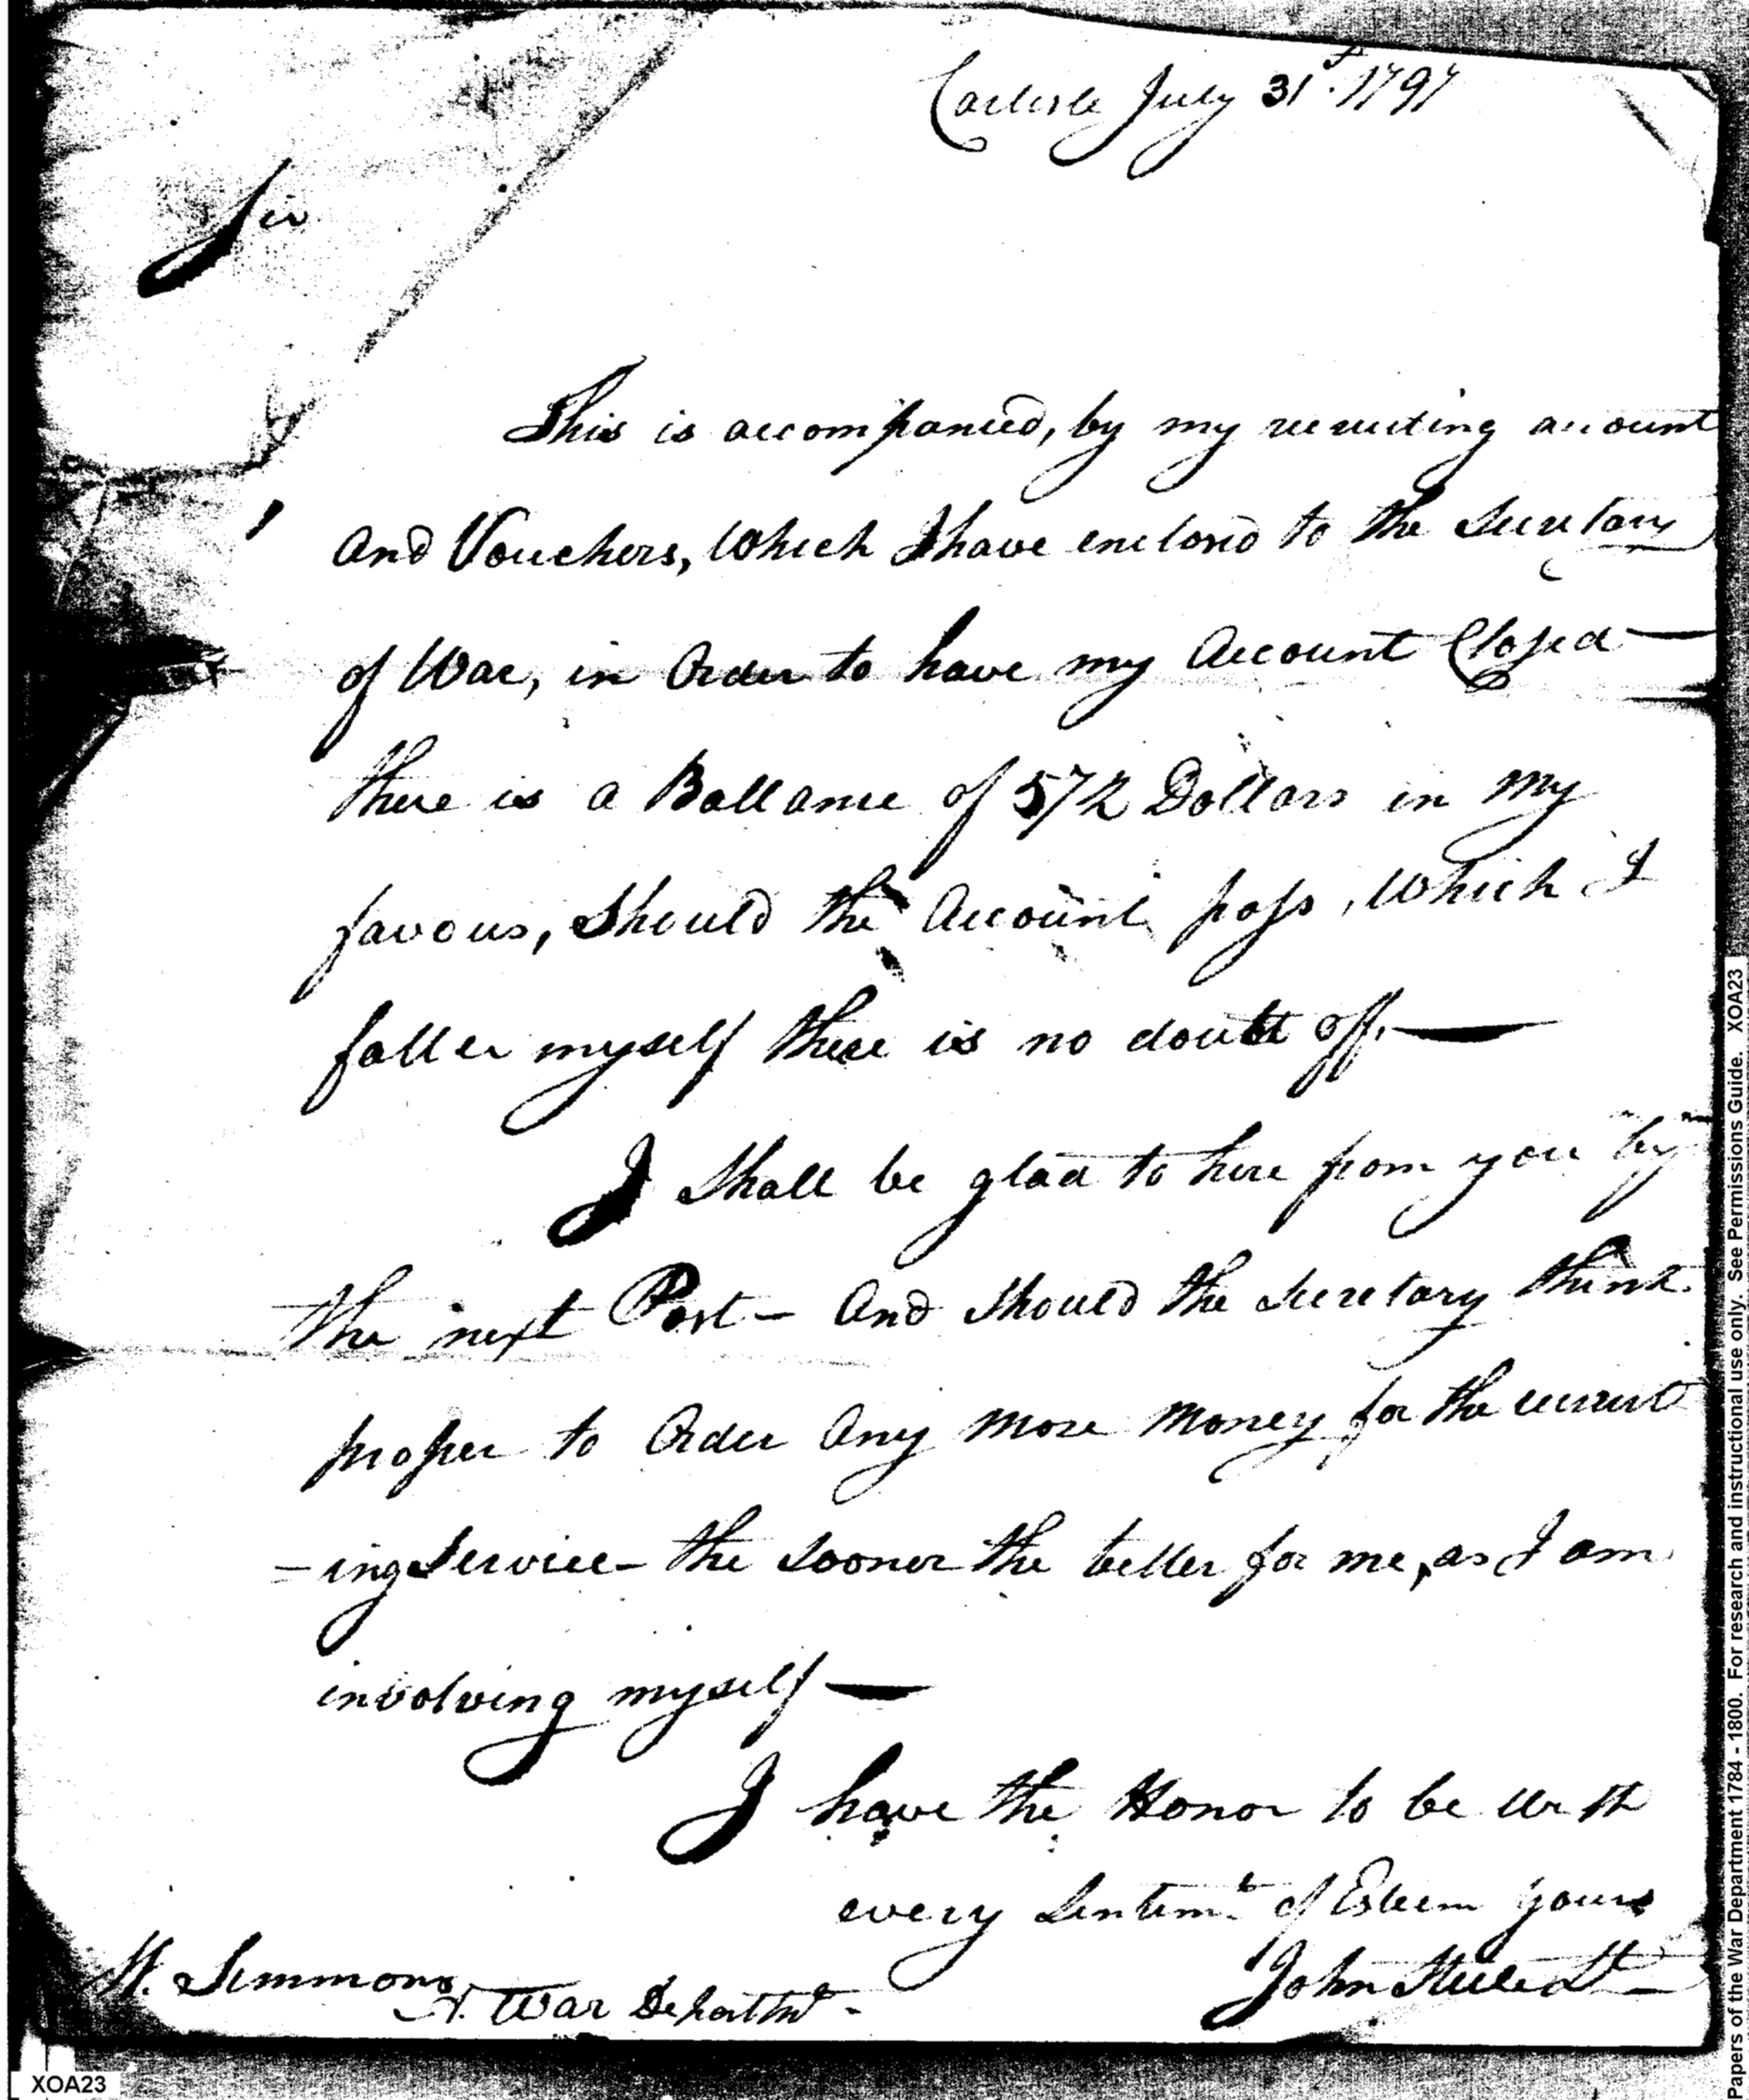 Carlisle July 31st. 1797
Sir
This is accompanied, by my recruiting account
And Vouchers, Which I have enclosd to the Secretary
of War, in Order to have my Account Closed —
there is a Ballance of 572 Dollars in My
favour, Should the Account pass, Which I
falter myself there is no doubt off. —
I Shall be glad to here from you by
the next Post – And Should the Secretary think
proper to Order Any More Money for the recruit
- ing Service – the Sooner the better for me, as I am
involving myself —
I have the Honor to be With
every Sentimt. of Esteem Yours
John Steele Lt
W. Simmons
A. War Departmt -
XOA23
Papers of the War Department 1784 - 1800. For research and instructional use only. See Permissions Guide. XOA23